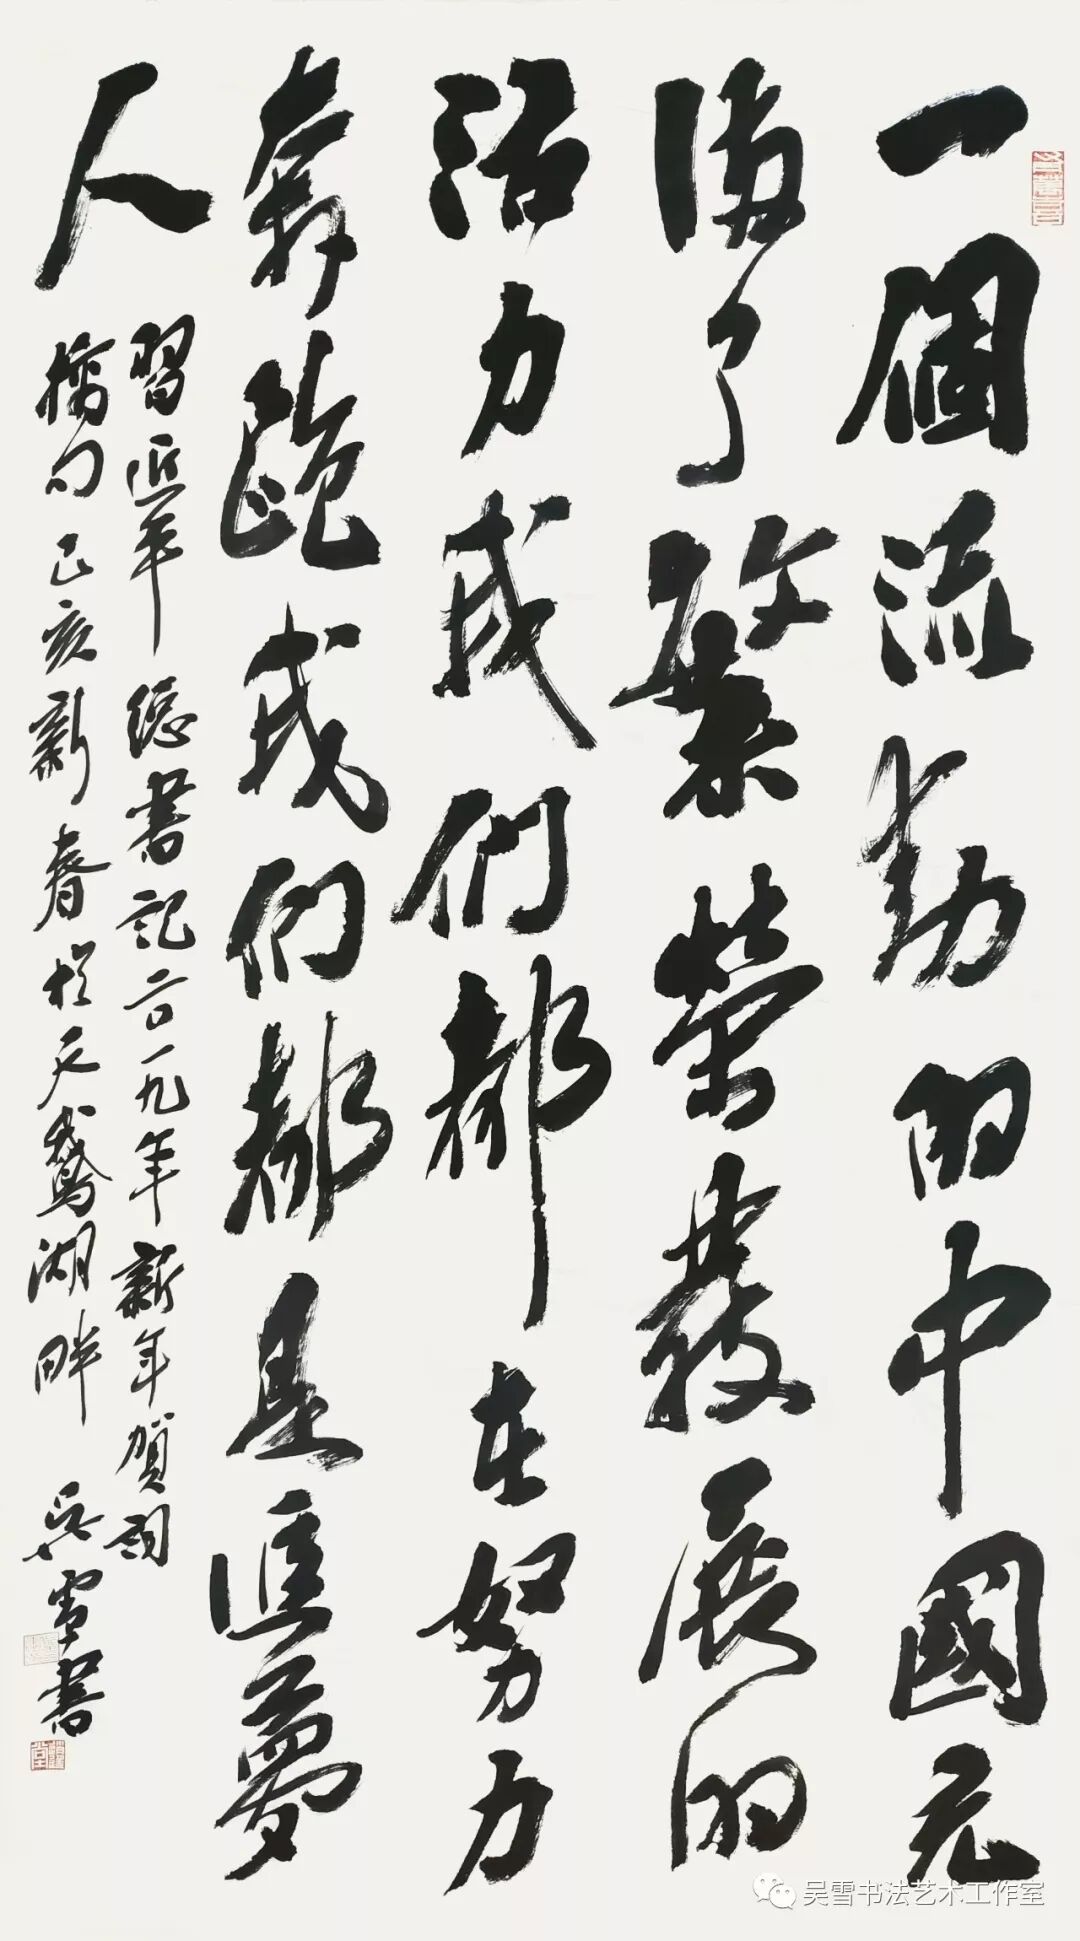 一個流動的中國充
滿了繁榮發展的
活力我們都在努力
奔跑我们都是追夢
人
習近平總書記二〇一九年新年賀詞
摘句己亥新春於天鵝湖畔 吴雪書
吴雪书法艺术工作室